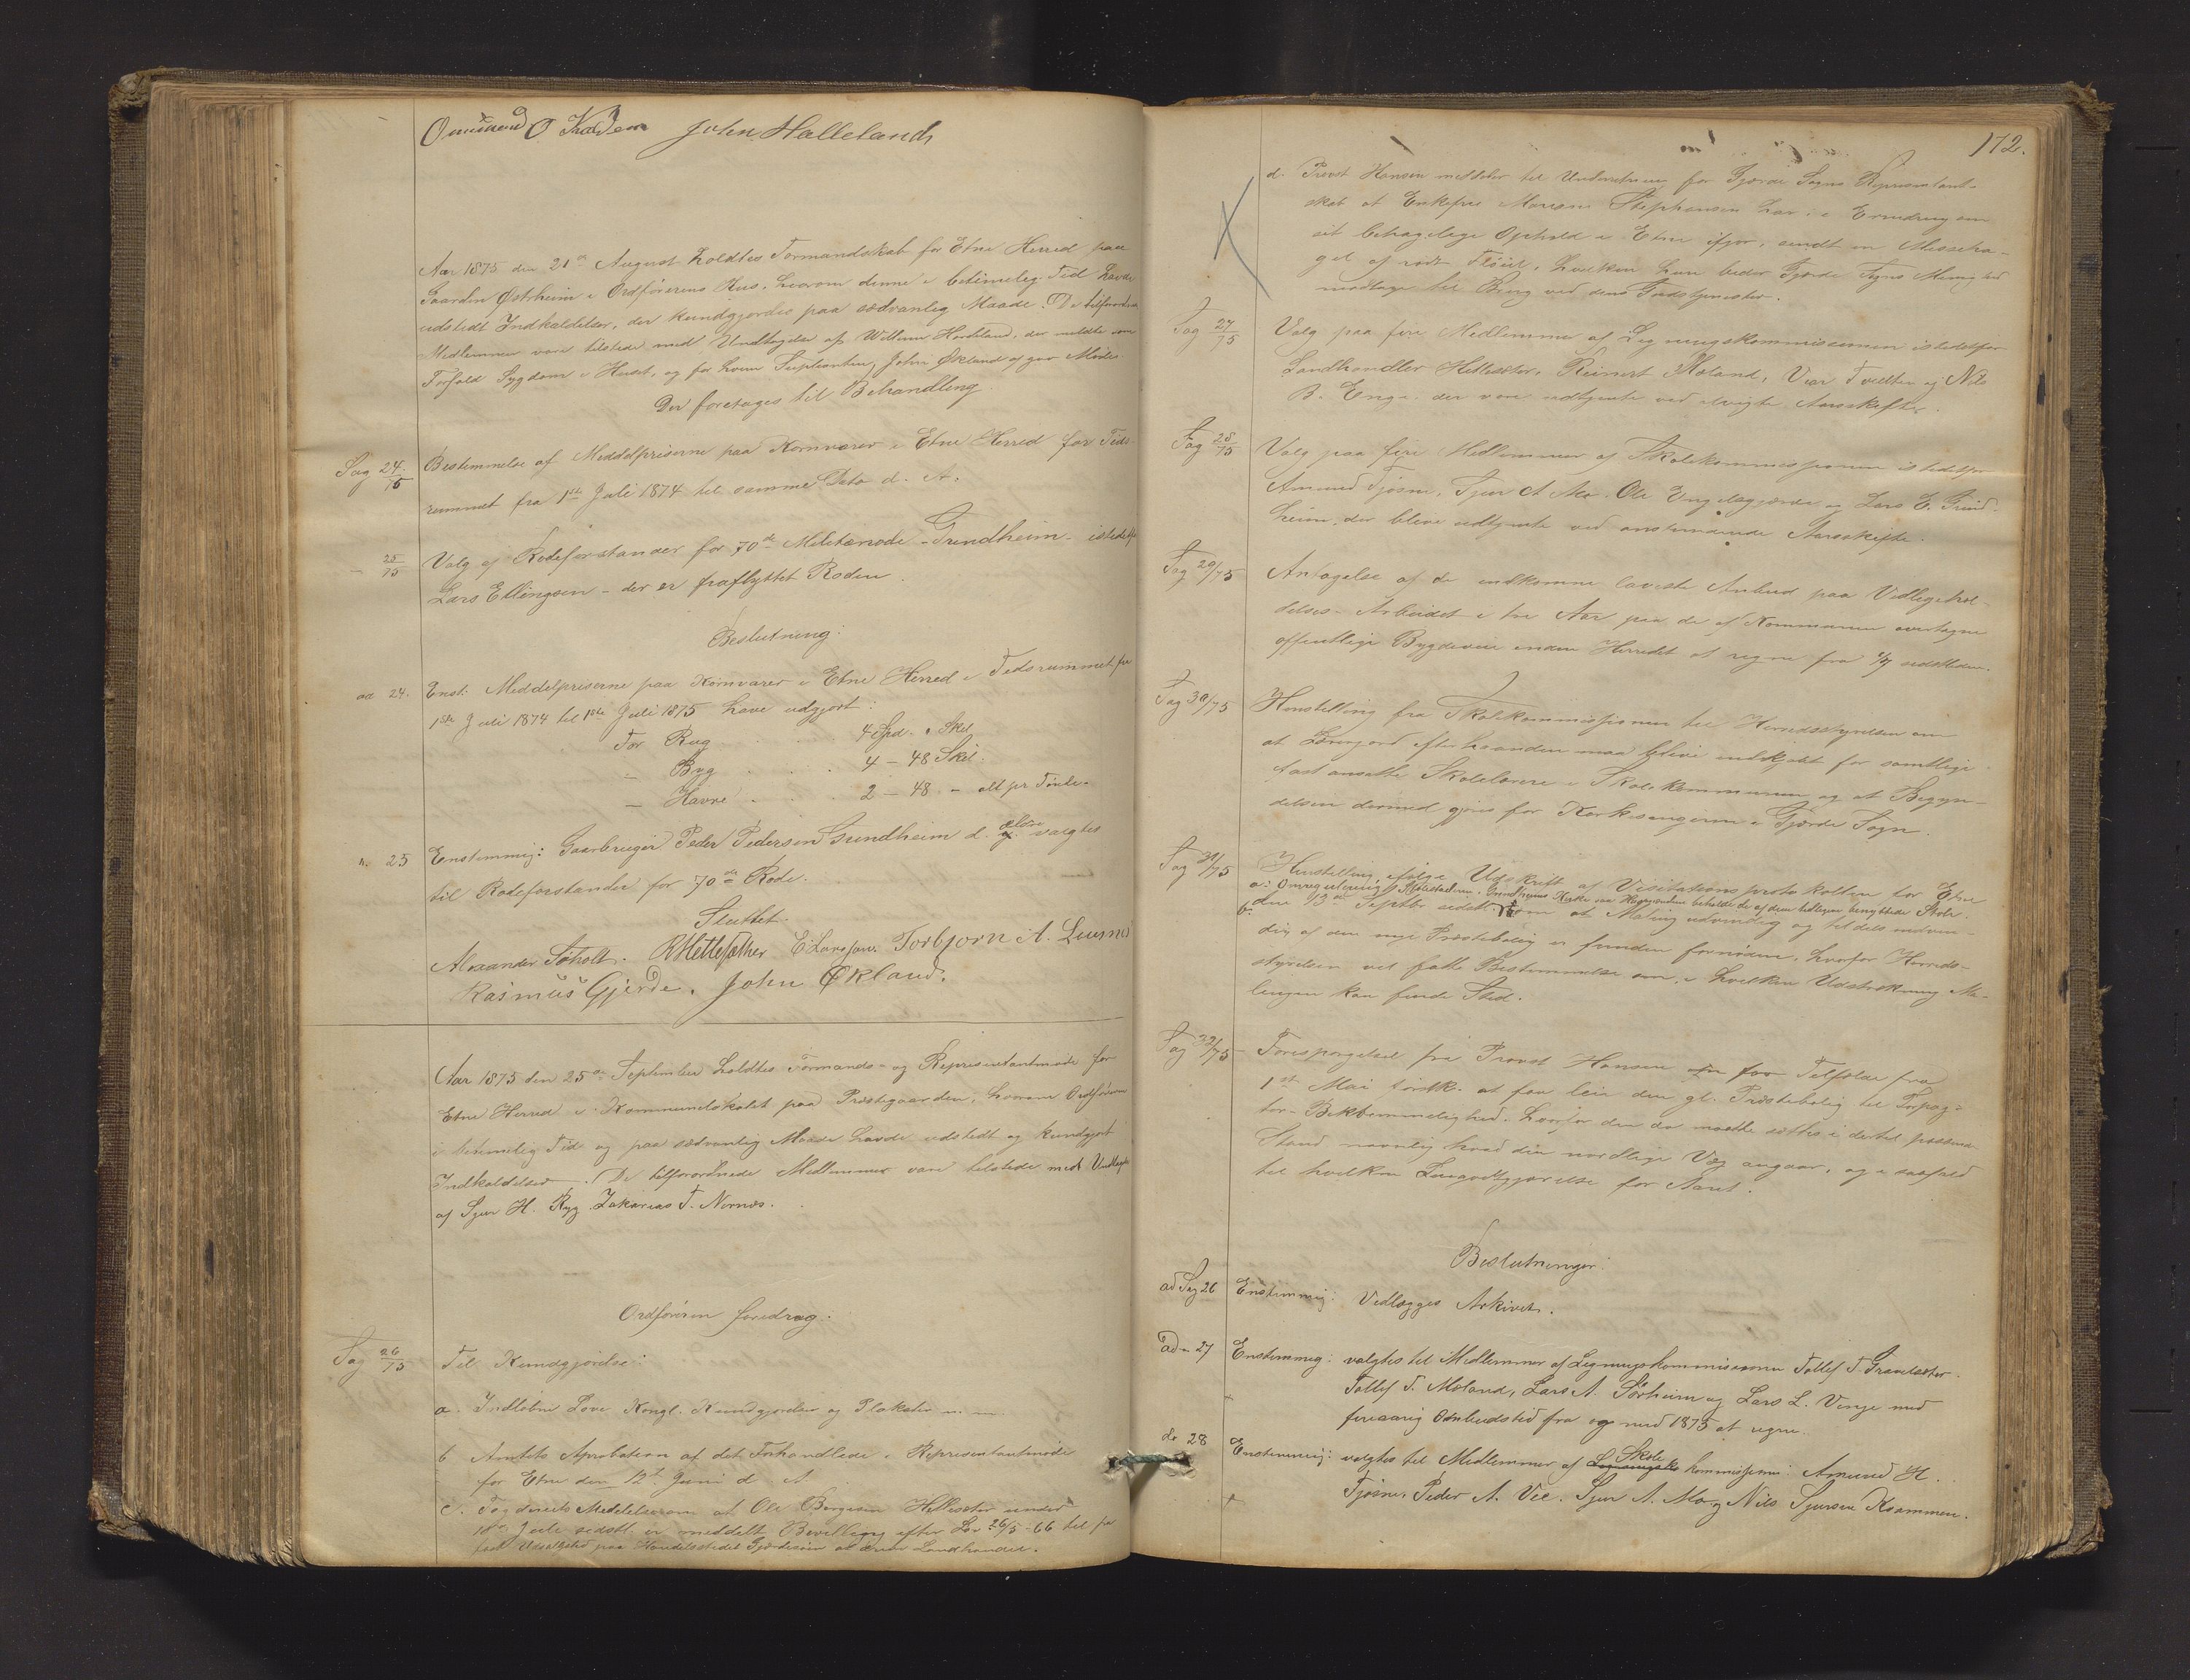 O Kaldem John Hallelands
Aar 1875 den 21de August holdtes Formandskab for Etne Herred paa
Gaarden Østrheim i Ordførerens Hus, hvorom denne i betimelig Tid havde
udstedt Indkaldelser, der kundgjordes paa sædvanlig Maade. De tilforordnede
Medlemmer vare tilstede med Undtagelse af Willum Hardeland, der meldte som
Forfald Sygdom i Huset, og for hvem Supleanten John Økland af gav Møde.
Der foretages til Behandling
Sag 24/75 Bestemmelse af Middelpriserne paa Kornvarer i Etne Herred for Tids-
rummet fra 1ste Juli 1874 til samme Dato d. A.
— 25/75 Valg af Rodeforstander for 70de Militærrode - Grindheim - istedetfor
Lars Ellingsen - der er fraflyttet Roden.
Beslutning:
ad 24. Enst: Middelpriserne paa Kornvarer i Etne Herred i Tidsrummet fra
1ste Juli 1874 til 1ste Juli 1875 have udgjort:
For Rug . . . 4 Spd. " Skil.
— Byg . . . 4 — 48 Skil.
— Havre . . . 2 — 48 — alt pr Tønde.
" 25 Enstemmig: Gaarbruger Peder Pedersen Grindheim d. ældre valgtes
til Rodeforstander for 70de Rode.
Sluttet.
Alexander Søholt. R Hettesæther E Larssen. Torbjørn A. Leusnes
Rasmus Gjerde. John Økland.
Aar 1875 den 25de September holdtes Formands- og Representantmøde for
Etne Herred i Kommunelokalet paa Præstegaarden, hvorom Ordføreren
i betimelig Tid og paa sædvanlig Maade havde udstedt og kundgjort
Indkaldelser. De tilforordnede Medlemmer vare tilstede med Undtagelse
af Sjur H. Ryg. Zakarias T. Nernæs.
Ordføreren foredrog:
Sag 26/75 Til Kundgjørelse:
a. Indløbne Love Kongl. Kundgjørelser og Plakater m. m.
b Amtets Aprobation af det Forhandlede i Representantmøde
for Etne den 12te Juni d. A.
c. Fogderiets Meddelelse om at Ole Børgesen Hettesæter under
18de Juli sidstl. er meddelt Bevilling efter Lov 26/5-66 til fra
fast Udsalgsted paa Handelsstedet Gjerdesøen at drive Landhandel.
172.
d. Provst Hansen meddeler til Underretning for Gjerde Sogns Representant-
skab at Enkefrue Mariane Stephansen har, i Erindring om
sit behagelige Ophold i Etne ifjor, sendt en Messeha-
gel af rødt Fløiel, hvilken hun beder Gjerde Sogns Menighed
modtage til Brug ved dens Gudstjenester.
Sag 27/75 Valg paa fire Medlemmer af Ligningskommissionen istedetfor
Landhandler Hettesæter, Reinert Moland, Vier Tvedten og Nils
B. Enge. der vare udtjente ved afvigte Aarsskifte.
Sag 28/75 Valg paa fire Medlemmer af Skolekommissionen istedetfor
Amund Fjøsne, Sjur A Mo. Ole Engelsgjerde og Lars E. Grind-
heim, der blive udtjente ved anstundende Aarsskifte.
Sag 29/75 Antagelse af de indkomne laveste Anbud paa Vedligehol-
delses-Arbeidet i tre Aar paa de af Kommunen overtagne
offentlige Bygdeveie inden Herredet at regne fra 1/7 sidstleden.
Sag 30/75 Henstilling fra Skolekommissionen til Herredsstyrelsen om
at Lærerjord efterhaanden maa blive indkjøbt for samtlige
fast ansatte Skolelærere i Skolekommunen og at Begyn-
delsen dermed gjøres for Kirkesangeren i Gjerde Sogn.
Sag 31/75 Henstilling, ifølge Udskrift af Visitatsprotokollen for Etne
a: Omregulering, Grindheims Kirke om beholde de af dem tidligere benyttede Stole.
b. den 13de Septbr sidstl. om at Maling udvendig og tildels indven-
dig af den nye Præstebolig er funden fornøden, hvorfor Herreds-
styrelsen vil fatte Bestemmelse om, i hvilken Udstrækning Ma-
lingen kan finde Sted.
Sag 32/75 - Forespørgelse fra Provst Hansen Tilfælde fra
1ste Mai førstk. at faa leie den gl. Præstebolig til Forpag-
ter-Bekvemmelighed, hvorfor den da maatte sættes i dertil passende
Stand navnlig hvad den nordlige Væg angaar, og i saafald
til hvilken Leiegodtgjørelse for Aaret.
Beslutninger:
ad Sag 26 Enstemmig: Vedlægges Arkivet.
ad " 27 Enstemmig: valgtes til Medlemmer af Ligningskommissionen Tollef T. Grandesæter.
Tollef T. Moland, Lars A. Sørheim og Lars L. Venge med
fireaarig Ombudstid fra og med 1875 at regne.
do 28 Enstemmig: valgtes til Medlemmer af Skolekommissionen: Amund H.
Fjøsne, Peder A. Vee. Sjur A. Mo og Nils Sjursen Kvammen.